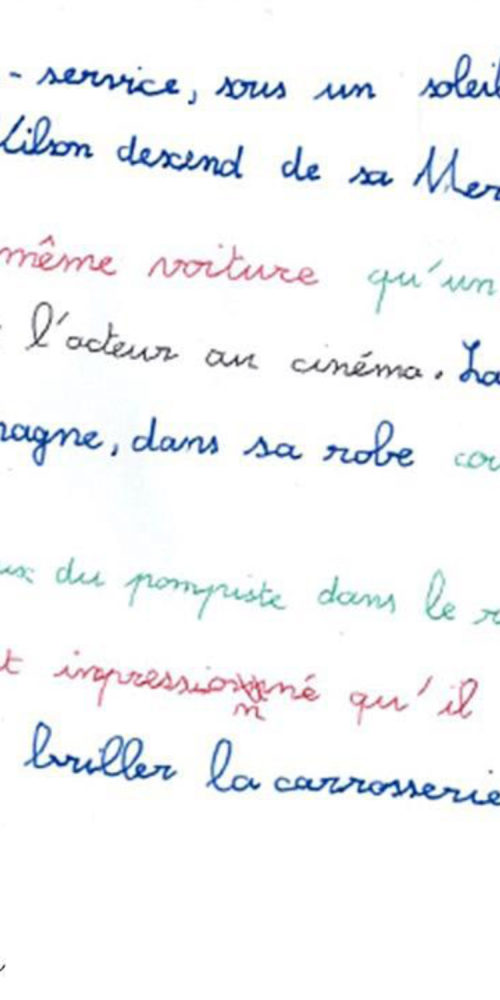 - service, sous un soleil
Wilson descend de sa Mer
même voiture qu'un
l'acteur au cinéma. La
magne, dans sa robe cou
ux du pompiste dans le r
t impressionné qu'il
briller la carrosserie